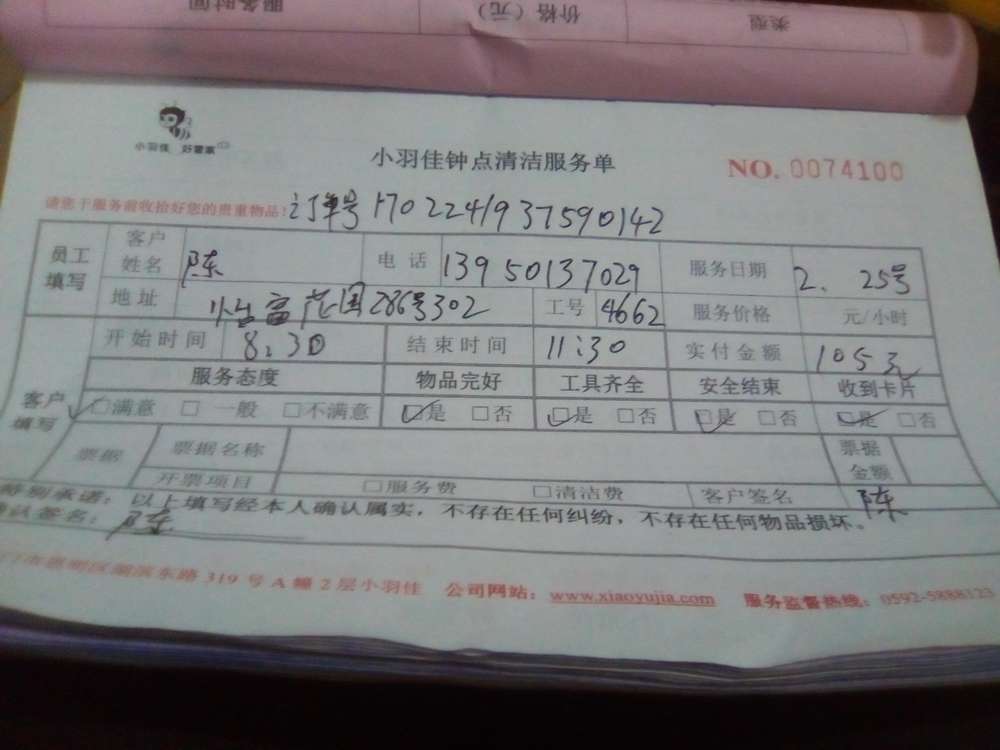 服务时间 价格（元） 类型
小羽佳 好管家
小羽佳钟点清洁服务单 NO. 0074100
请您于服务前收拾好您的贵重物品! 订单号 1702241937590142
员工填写 客户姓名 陈 电话 13950137029 服务日期 2. 25号
地址 怡富花园286号302 工号 4662 服务价格 元/小时
开始时间 8:30 结束时间 11:30 实付金额 105元
客户填写 服务态度 物品完好 工具齐全 安全结束 收到卡片
□满意 □一般 □不满意 □是 □否 □是 □否 □是 □否 □是 □否
票据 票据名称 票据金额
开票项目 □服务费 □清洁费 客户签名 陈
特别承诺：以上填写经本人确认属实，不存在任何纠纷，不存在任何物品损坏。
确认签名： 陈
门市思明区湖滨东路 319 号 A 幢 2 层小羽佳 公司网站：www.xiaoyujia.com 服务监督热线：0592-5888123